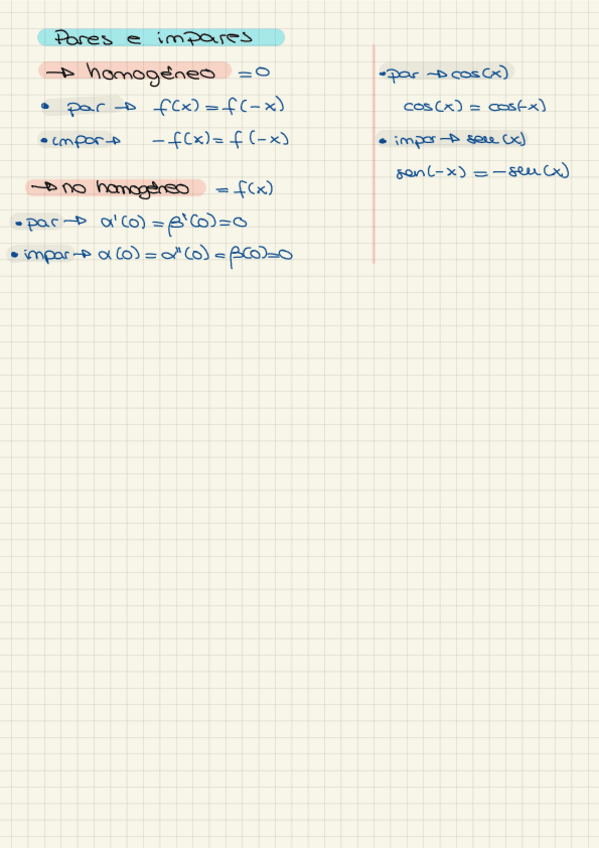 Pares e impares
→ homogéneo = 0
• par → f(x) = f(-x)
• impar → -f(x) = f(-x)
→ no homogéneo = f(x)
• par → α'(0) = β'(0) = 0
• impar → α(0) = α''(0) = β(0) = 0
• par → cos(x)
cos(x) = cos(-x)
• impar → sen(x)
sen(-x) = -sen(x)